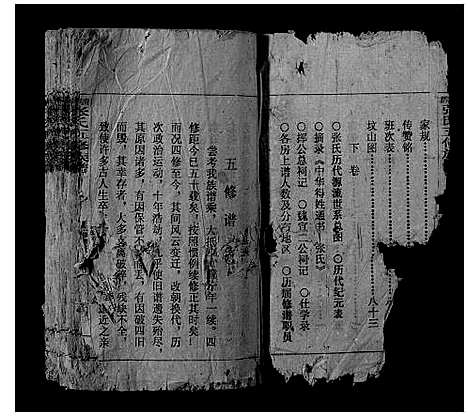 家规
传赞铭
班次表
坟山图 八十三
下卷
○张氏历代源流世系总图 ○历代纪元表
○摘录《中华姓通书·张氏》
○挥公总祠记 ○魏宜二公祠记 ○仕学录
○各房上谱人数及分布地区 ○历届修谱职员
五修谱
尝考我族谱乘,大抵年一续。四
修距今已五十载矣,按照惯例续修正其时矣!
而况四修至今,其间风云变迁,改朝换代,历
次政治运动,十年浩劫,几乎使旧谱遗失殆尽,
其原因诸多,有因保管不丢,有因破四旧
而毁,其幸存者,大多支离破碎,残缺不全,
致使许多古人生卒近之亲